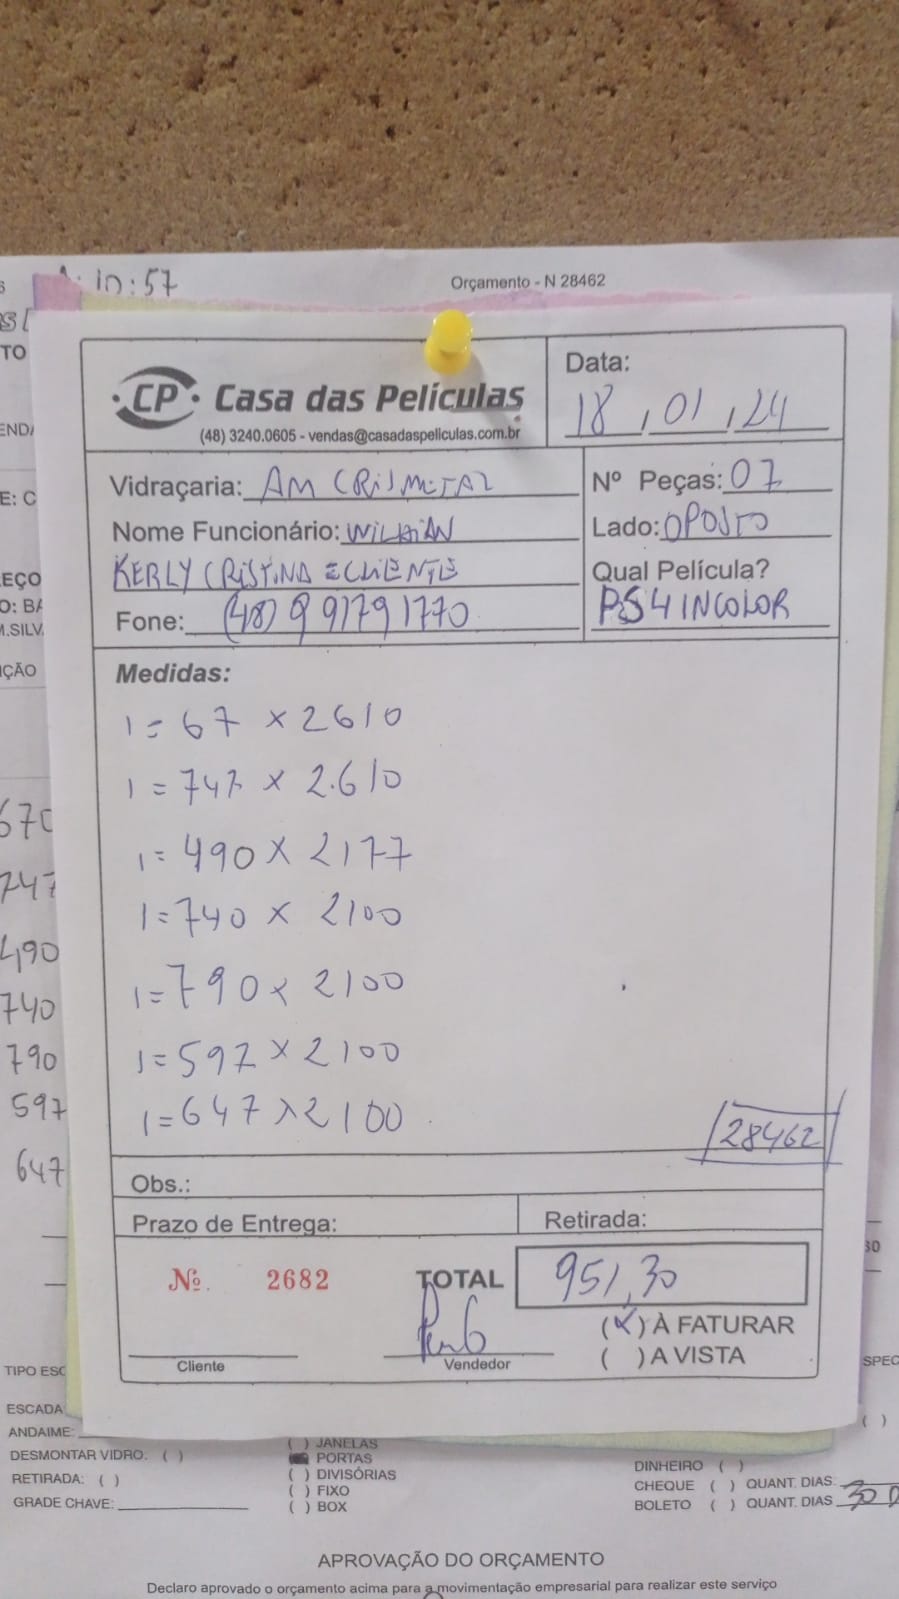 10:57
Orçamento - N 28462
CP Casa das Películas
(48) 3240.0605 - vendas@casadaspeliculas.com.br
Data:
18,01,24
Vidraçaria: AM CRISMETAL
Nº Peças: 07
Nome Funcionário: WILLIAN
Lado: OPOSTO
KERLY CRISTINA E CLIENTE
Qual Película?
Fone: (48) 9 91791770
PS4 INCOLOR
Medidas:
1 = 67 x 2610
1 = 747 x 2.610
1 = 490 x 2177
1 = 740 x 2100
1 = 790 x 2100
1 = 597 x 2100
1 = 647 x 2100
670
747
490
740
790
597
647
28462
Obs.:
Prazo de Entrega:
Retirada:
Nº. 2682
TOTAL 951,30
(x) À FATURAR
( ) A VISTA
Cliente
Vendedor
TIPO ESC
ESCADA
ANDAIME:
DESMONTAR VIDRO: ( )
RETIRADA: ( )
GRADE CHAVE:
( ) JANELAS
PORTAS
( ) DIVISÓRIAS
( ) FIXO
( ) BOX
DINHEIRO ( )
CHEQUE ( ) QUANT. DIAS:
BOLETO ( ) QUANT. DIAS 30 D
APROVAÇÃO DO ORÇAMENTO
Declaro aprovado o orçamento acima para a movimentação empresarial para realizar este serviço